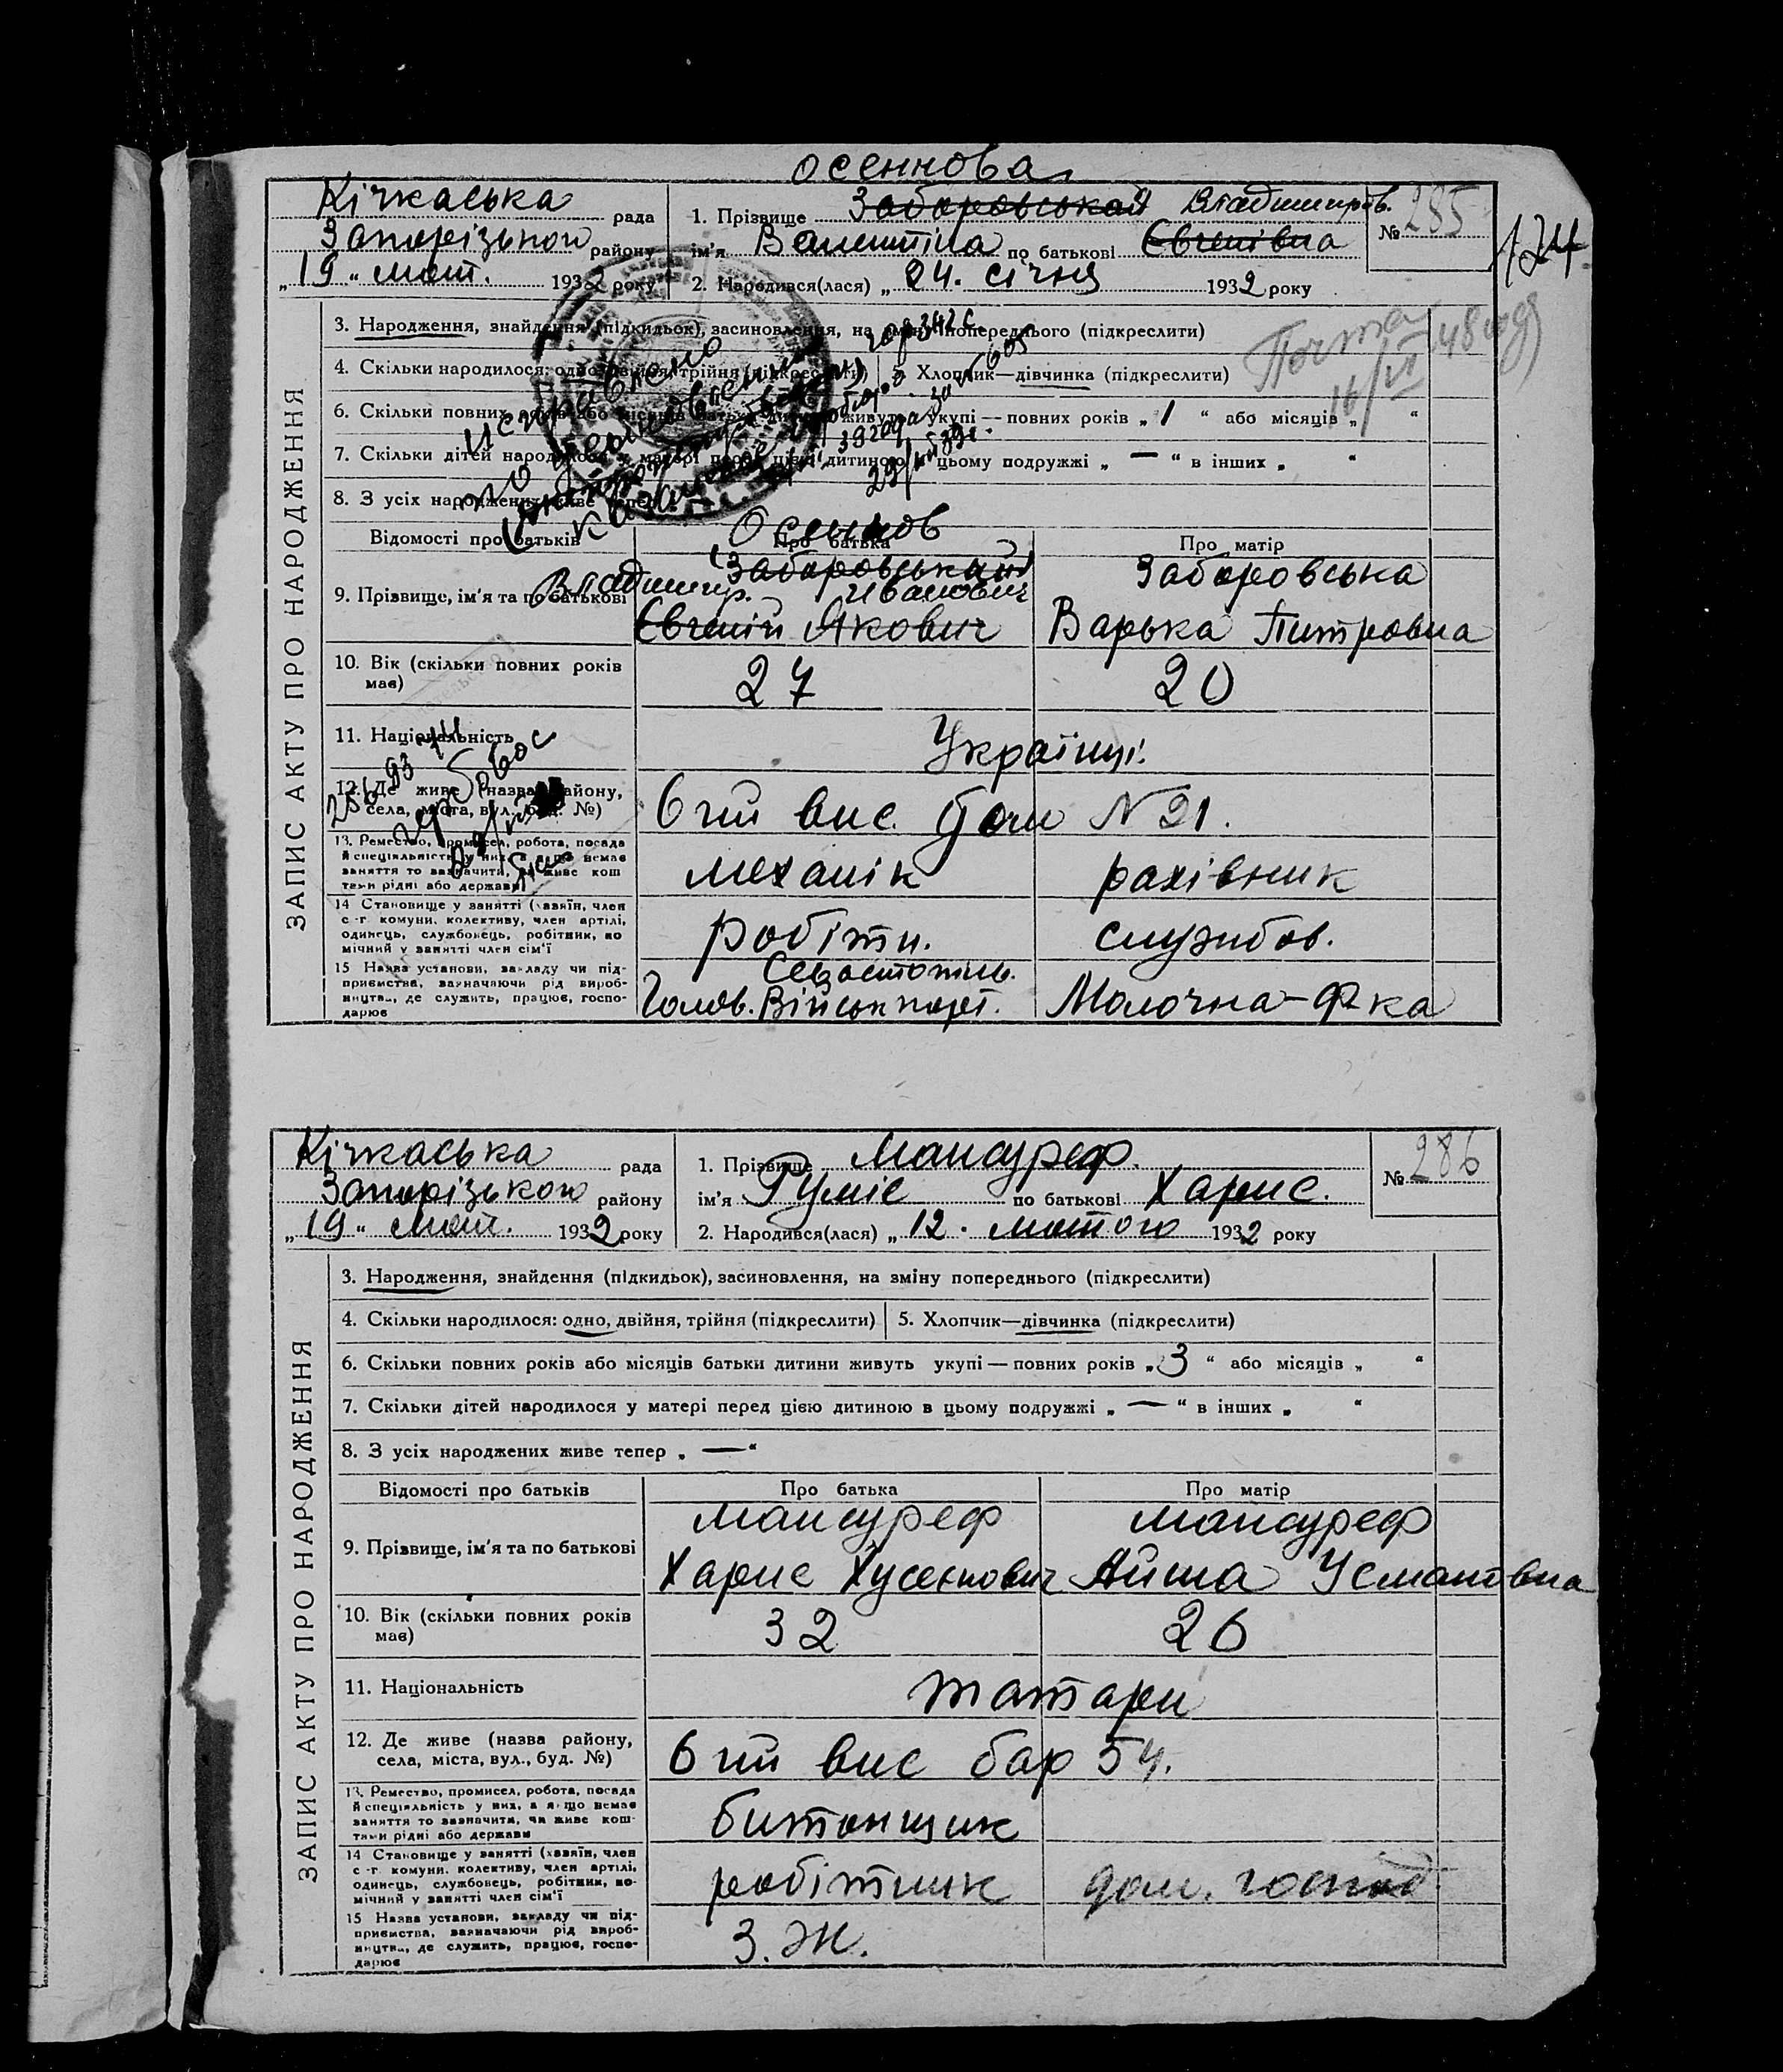 осеннова
Кічкаська рада
Запорізького району
„ 19 “ лют. 1932 року
1. Прізвище Заборовськая Владимиров.
ім'я Валентіна по батькові Євгенівна
2. Народився(лася) „ 24. січня 1932 року
№ 285
124
3. Народження, знайдення (підкидьок), засиновлення, на зміну попереднього (підкреслити)
4. Скільки народилося: одно, двійня, трійня (підкреслити) 5. Хлопчик—дівчинка (підкреслити)
6. Скільки повних років або місяців батьки дитини живуть укупі — повних років „ 1 “ або місяців „ “
7. Скільки дітей народилося у матері перед цією дитиною в цьому подружжі „ — “ в інших „ “
8. З усіх народжених живе тепер
исправлено
16/VI 48
ЗАПИС АКТУ ПРО НАРОДЖЕННЯ
Відомості про батьків Про батька Про матір
Осеннов
9. Прізвище, ім'я та по батькові
Заборовський
Владимир. Иванович
Євгеній Якович
Заборовська
Варька Питровна
10. Вік (скільки повних років має) 27 20
11. Національність Українці.
12. Де живе (назва району, села, міста, вул., буд. №) 6 ий вис. дом N 21.
13. Ремество, промисел, робота, посада й спеціяльність у них, а якщо немає заняття то зазначити, чи живе коштами рідні або держави
механік рахівник
14 Становище у занятті (хазяїн, член с.-г. комуни, колективу, член артілі, одинець, службовець, робітник, помічний у занятті член сім'ї
робітн. службов.
15 Назва установи, закладу чи підприємства, зазначаючи рід виробництва, де служить, працює, господарює
Севастопіль.
Голов. Військпорт. Молочна-Ф-ка
Кічкаська рада
Запорізького району
„ 19 “ лют. 1932 року
1. Прізвище Мансуреф.
ім'я Руміє по батькові Харис.
2. Народився(лася) „ 12. лютого 1932 року
№ 286
3. Народження, знайдення (підкидьок), засиновлення, на зміну попереднього (підкреслити)
4. Скільки народилося: одно, двійня, трійня (підкреслити) 5. Хлопчик—дівчинка (підкреслити)
6. Скільки повних років або місяців батьки дитини живуть укупі — повних років „ 3 “ або місяців „ “
7. Скільки дітей народилося у матері перед цією дитиною в цьому подружжі „ — “ в інших „ “
8. З усіх народжених живе тепер „ — “
ЗАПИС АКТУ ПРО НАРОДЖЕННЯ
Відомості про батьків Про батька Про матір
9. Прізвище, ім'я та по батькові
Мансуреф Мансуреф
Харис Хусенович Айша Усмановна
10. Вік (скільки повних років має) 32 26
11. Національність татари
12. Де живе (назва району, села, міста, вул., буд. №) 6 ий вис бар 54.
13. Ремество, промисел, робота, посада й спеціяльність у них, а якщо немає заняття то зазначити, чи живе коштами рідні або держави
битонщик
14 Становище у занятті (хазяїн, член с.-г. комуни, колективу, член артілі, одинець, службовець, робітник, помічний у занятті член сім'ї
робітник дом. господ.
15 Назва установи, закладу чи підприємства, зазначаючи рід виробництва, де служить, працює, господарює
З. Ж.